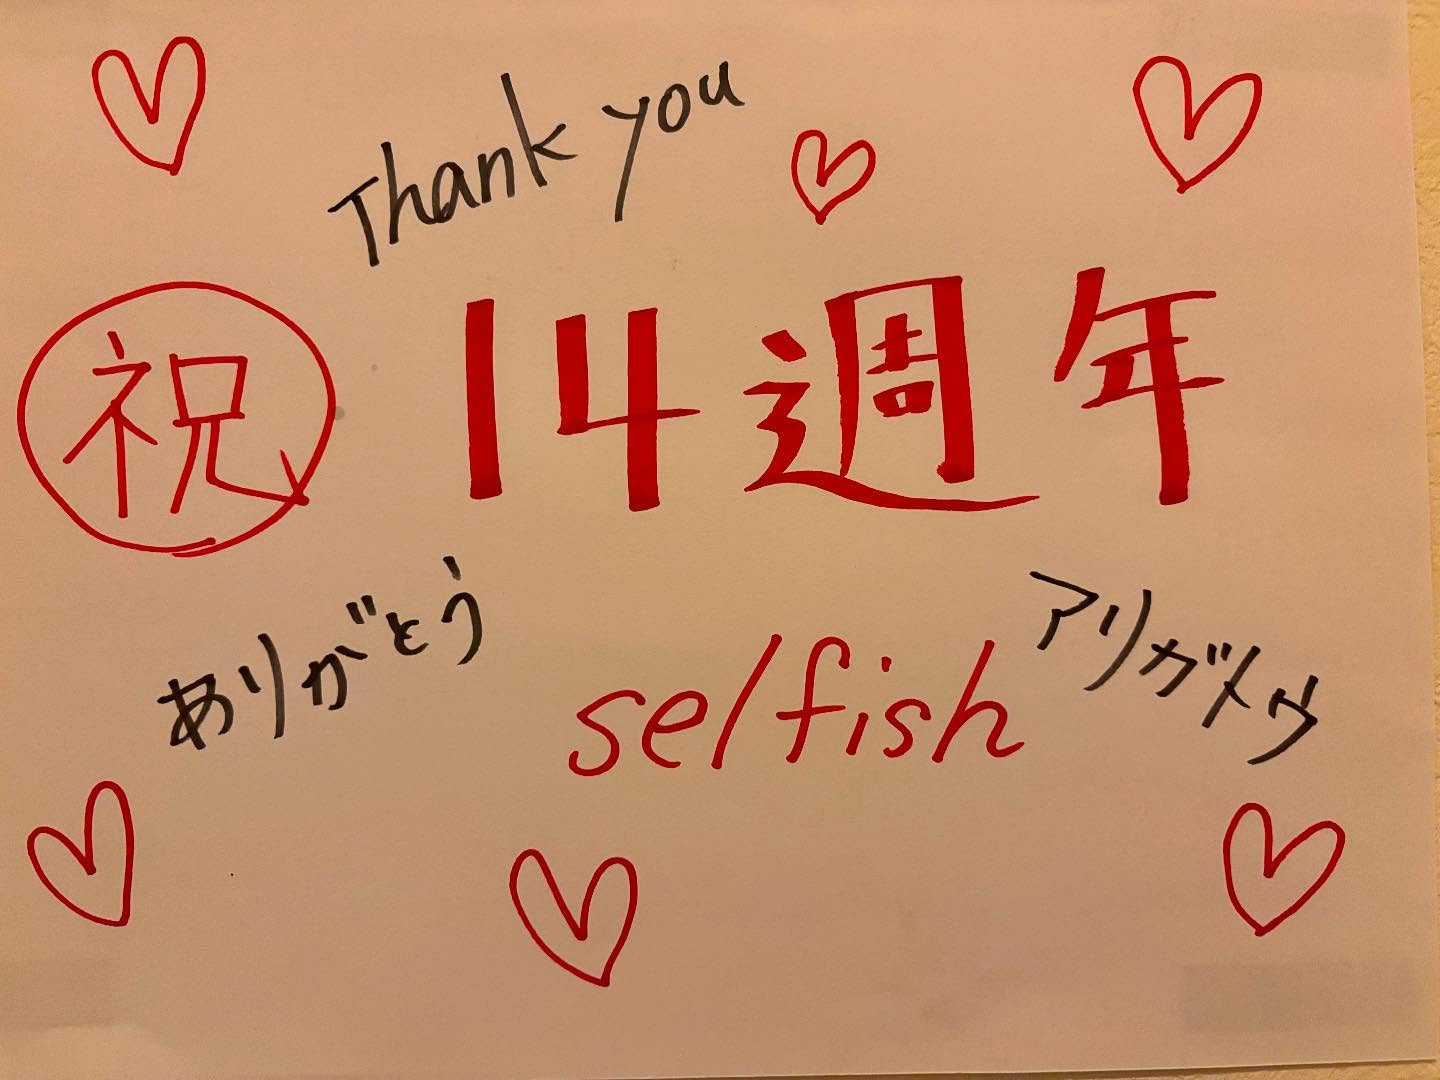 Thank you
祝 14週年
ありがとう
アリガトウ
selfish